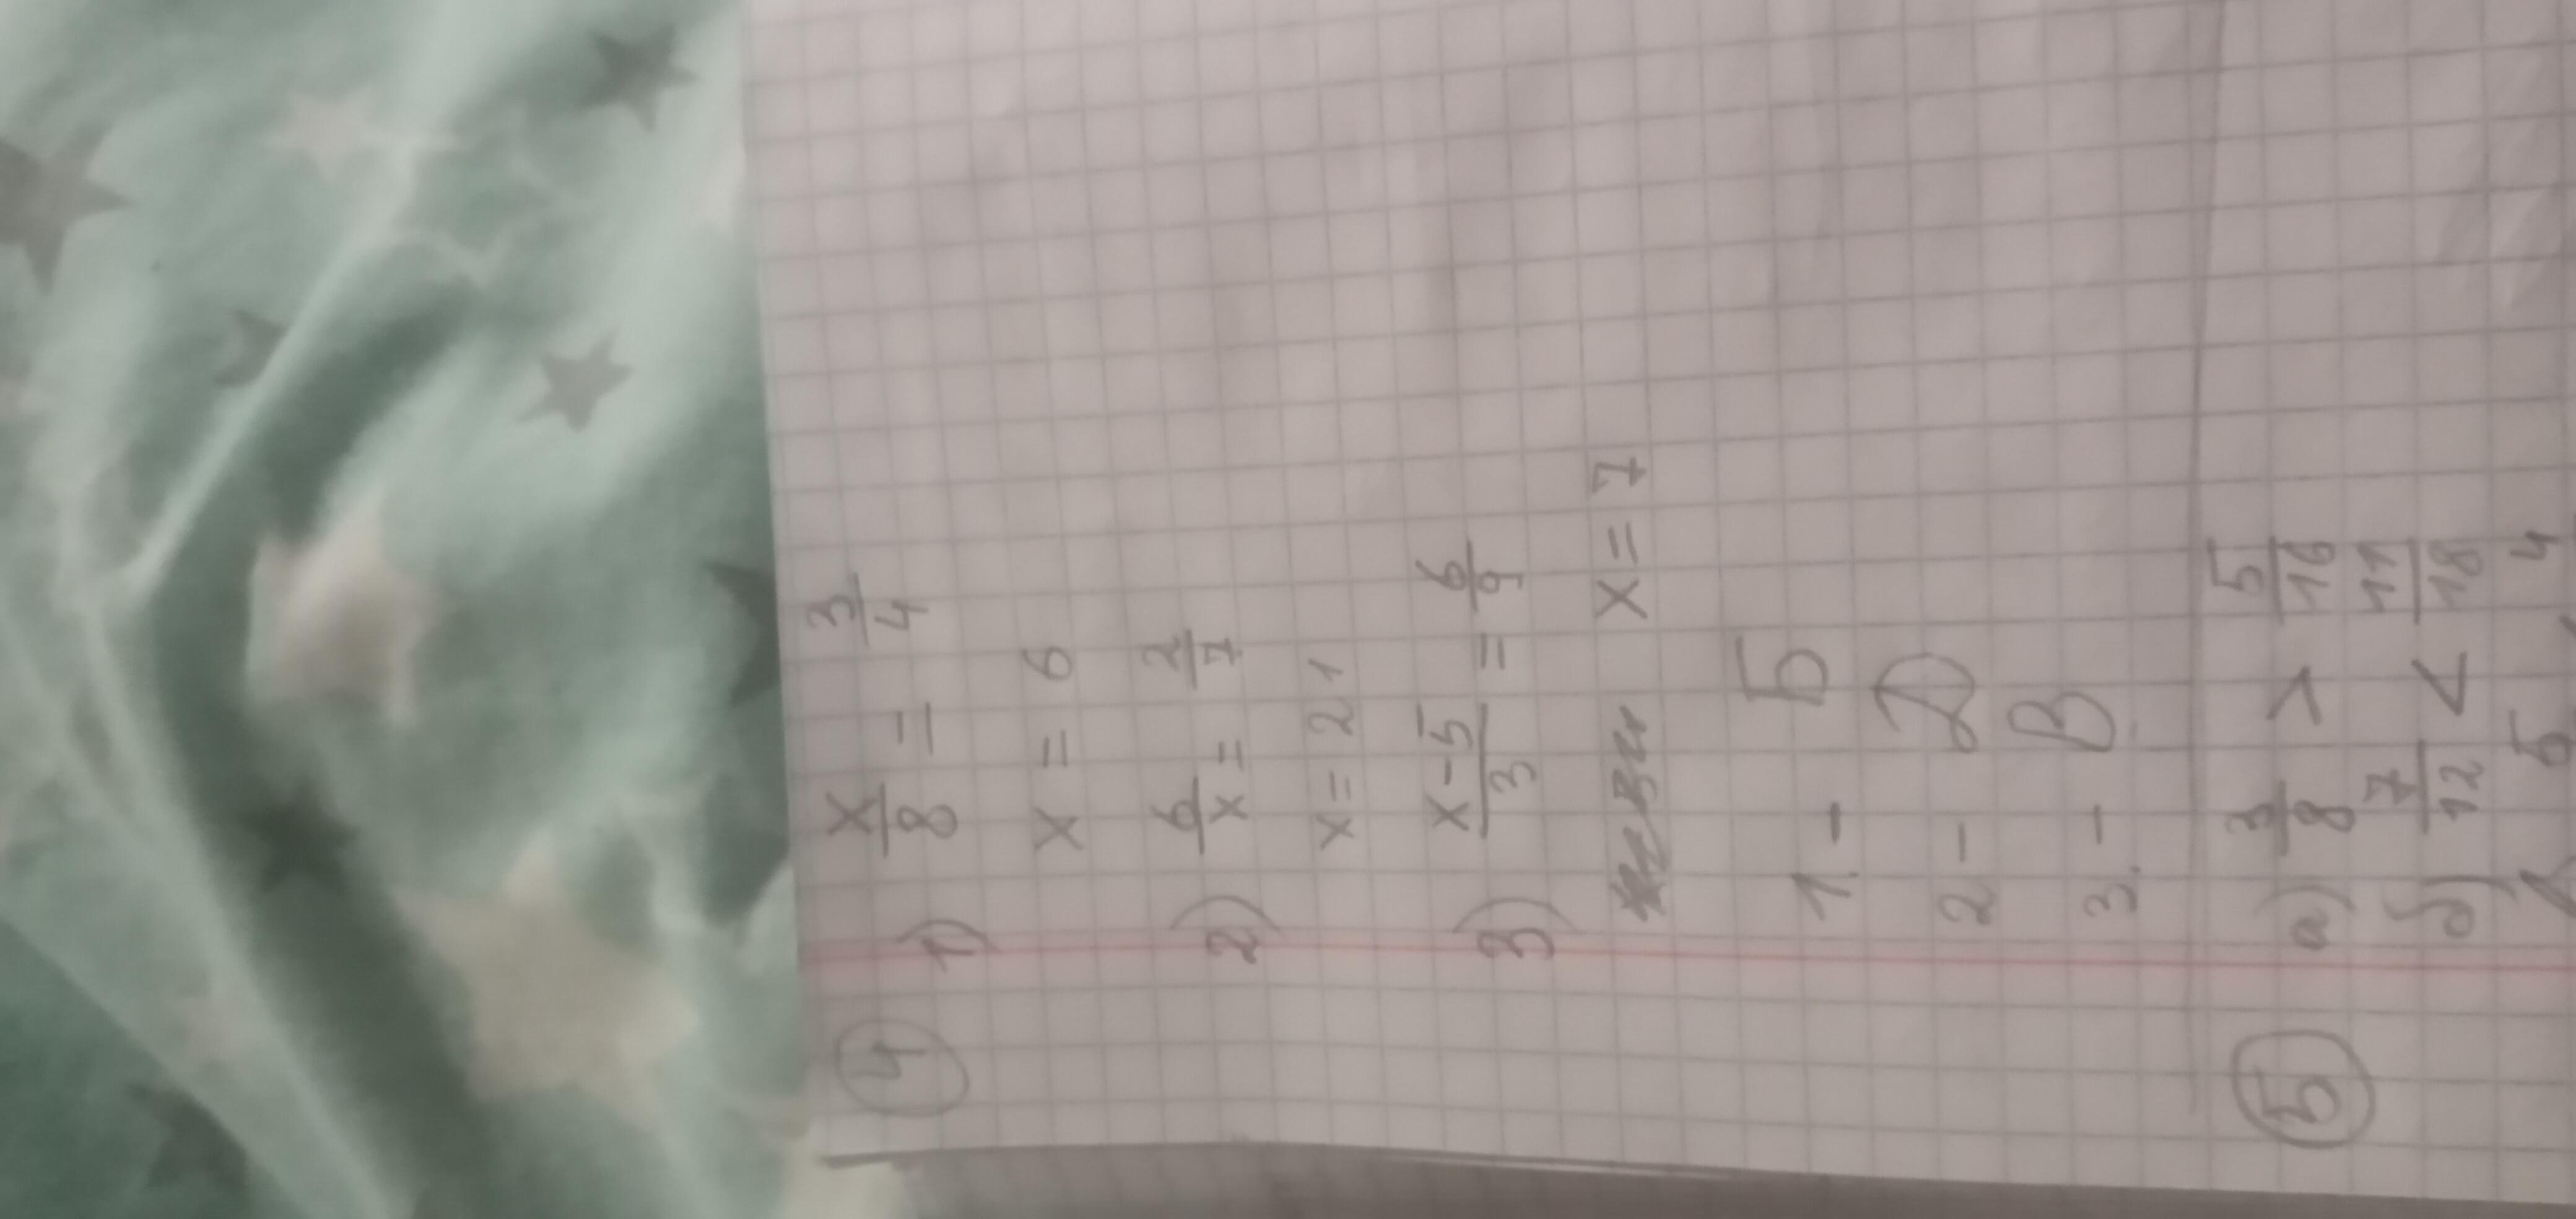 4
1) x/8 = 3/4
x = 6
2) 6/x = 2/7
x = 21
3) x-5/3 = 6/9
x = 7
1. - Б
2 - Д
3. - В
5
а) 3/8 > 5/16
б) 7/12 < 11/18
5 4